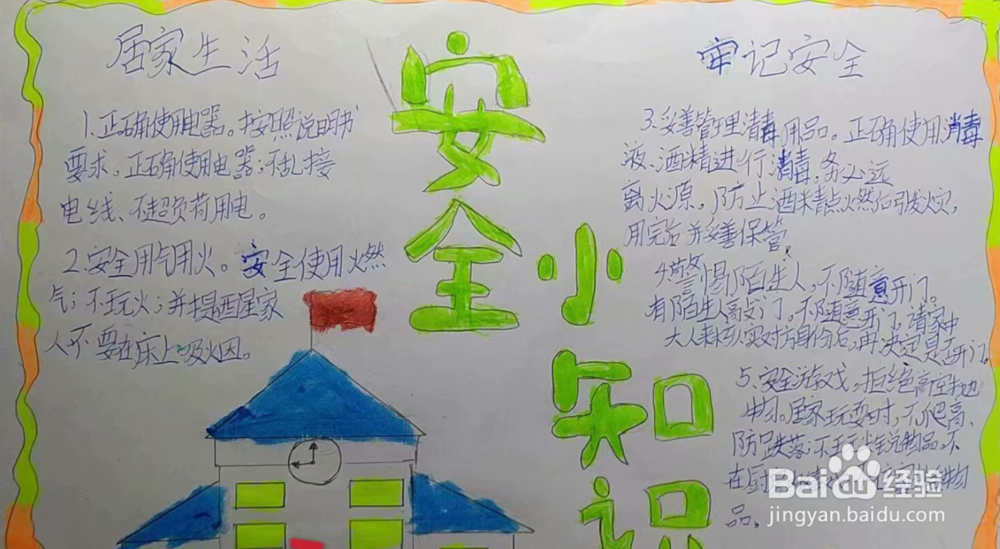 居家生活
1.正确使用电器。按照说明书
要求,正确使用电器;不乱接
电线、不超负荷用电。
2.安全用气用火。安全使用燃
气;不玩火;并提醒家
人不要在床上吸烟。
安全
小
知
识
牢记安全
3.妥善管理消毒用品。正确使用消毒
液、酒精进行消毒,务必远
离火源,防止酒精点燃后引发火灾,
用完后并妥善保管。
4.警惕陌生人,不随意开门。
有陌生人敲门,不随意开门,请家中
大人来确认对方身份后,再决定是否开门。
5.安全游戏,拒绝高空抛
物。居家玩耍时,不爬高、
防跌落;不玩尖锐物品,不
在厨
物
品。
Baidu经验
jingyan.baidu.com